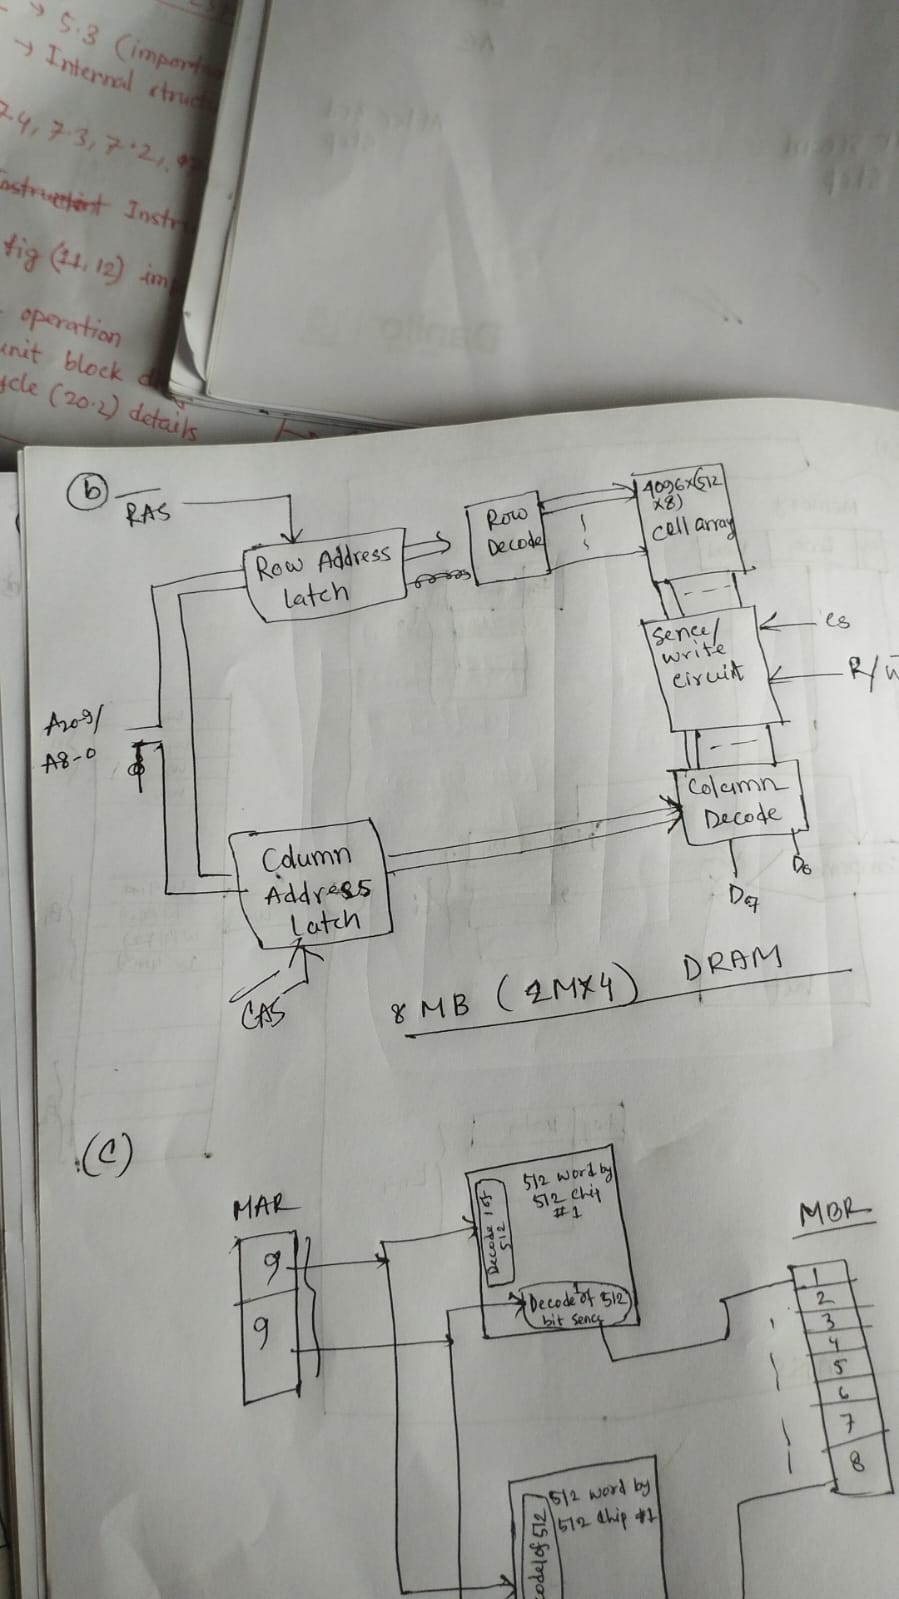 → 5.3 (import
→ Internal struct
7.4, 7.3, 7.2,
Instr
fig (11, 12) im
operation
unit block d
cycle (20.2) details
(b)
RAS
Row Address
Latch
Row
Decode
4096x(512
x8)
cell array
Sence/
write
circuit
cs
R/W
A20-9/
A8-0
Column
Decode
D7
D0
Column
Address
Latch
CAS
8 MB (2M×4) DRAM
(C)
MAR
9
9
512 word by
512 chip
#1
Decode 1 of
512
Decode of 512
bit sence
MBR
1
2
3
4
5
6
7
8
512 word by
512 chip #1
code1 of 512